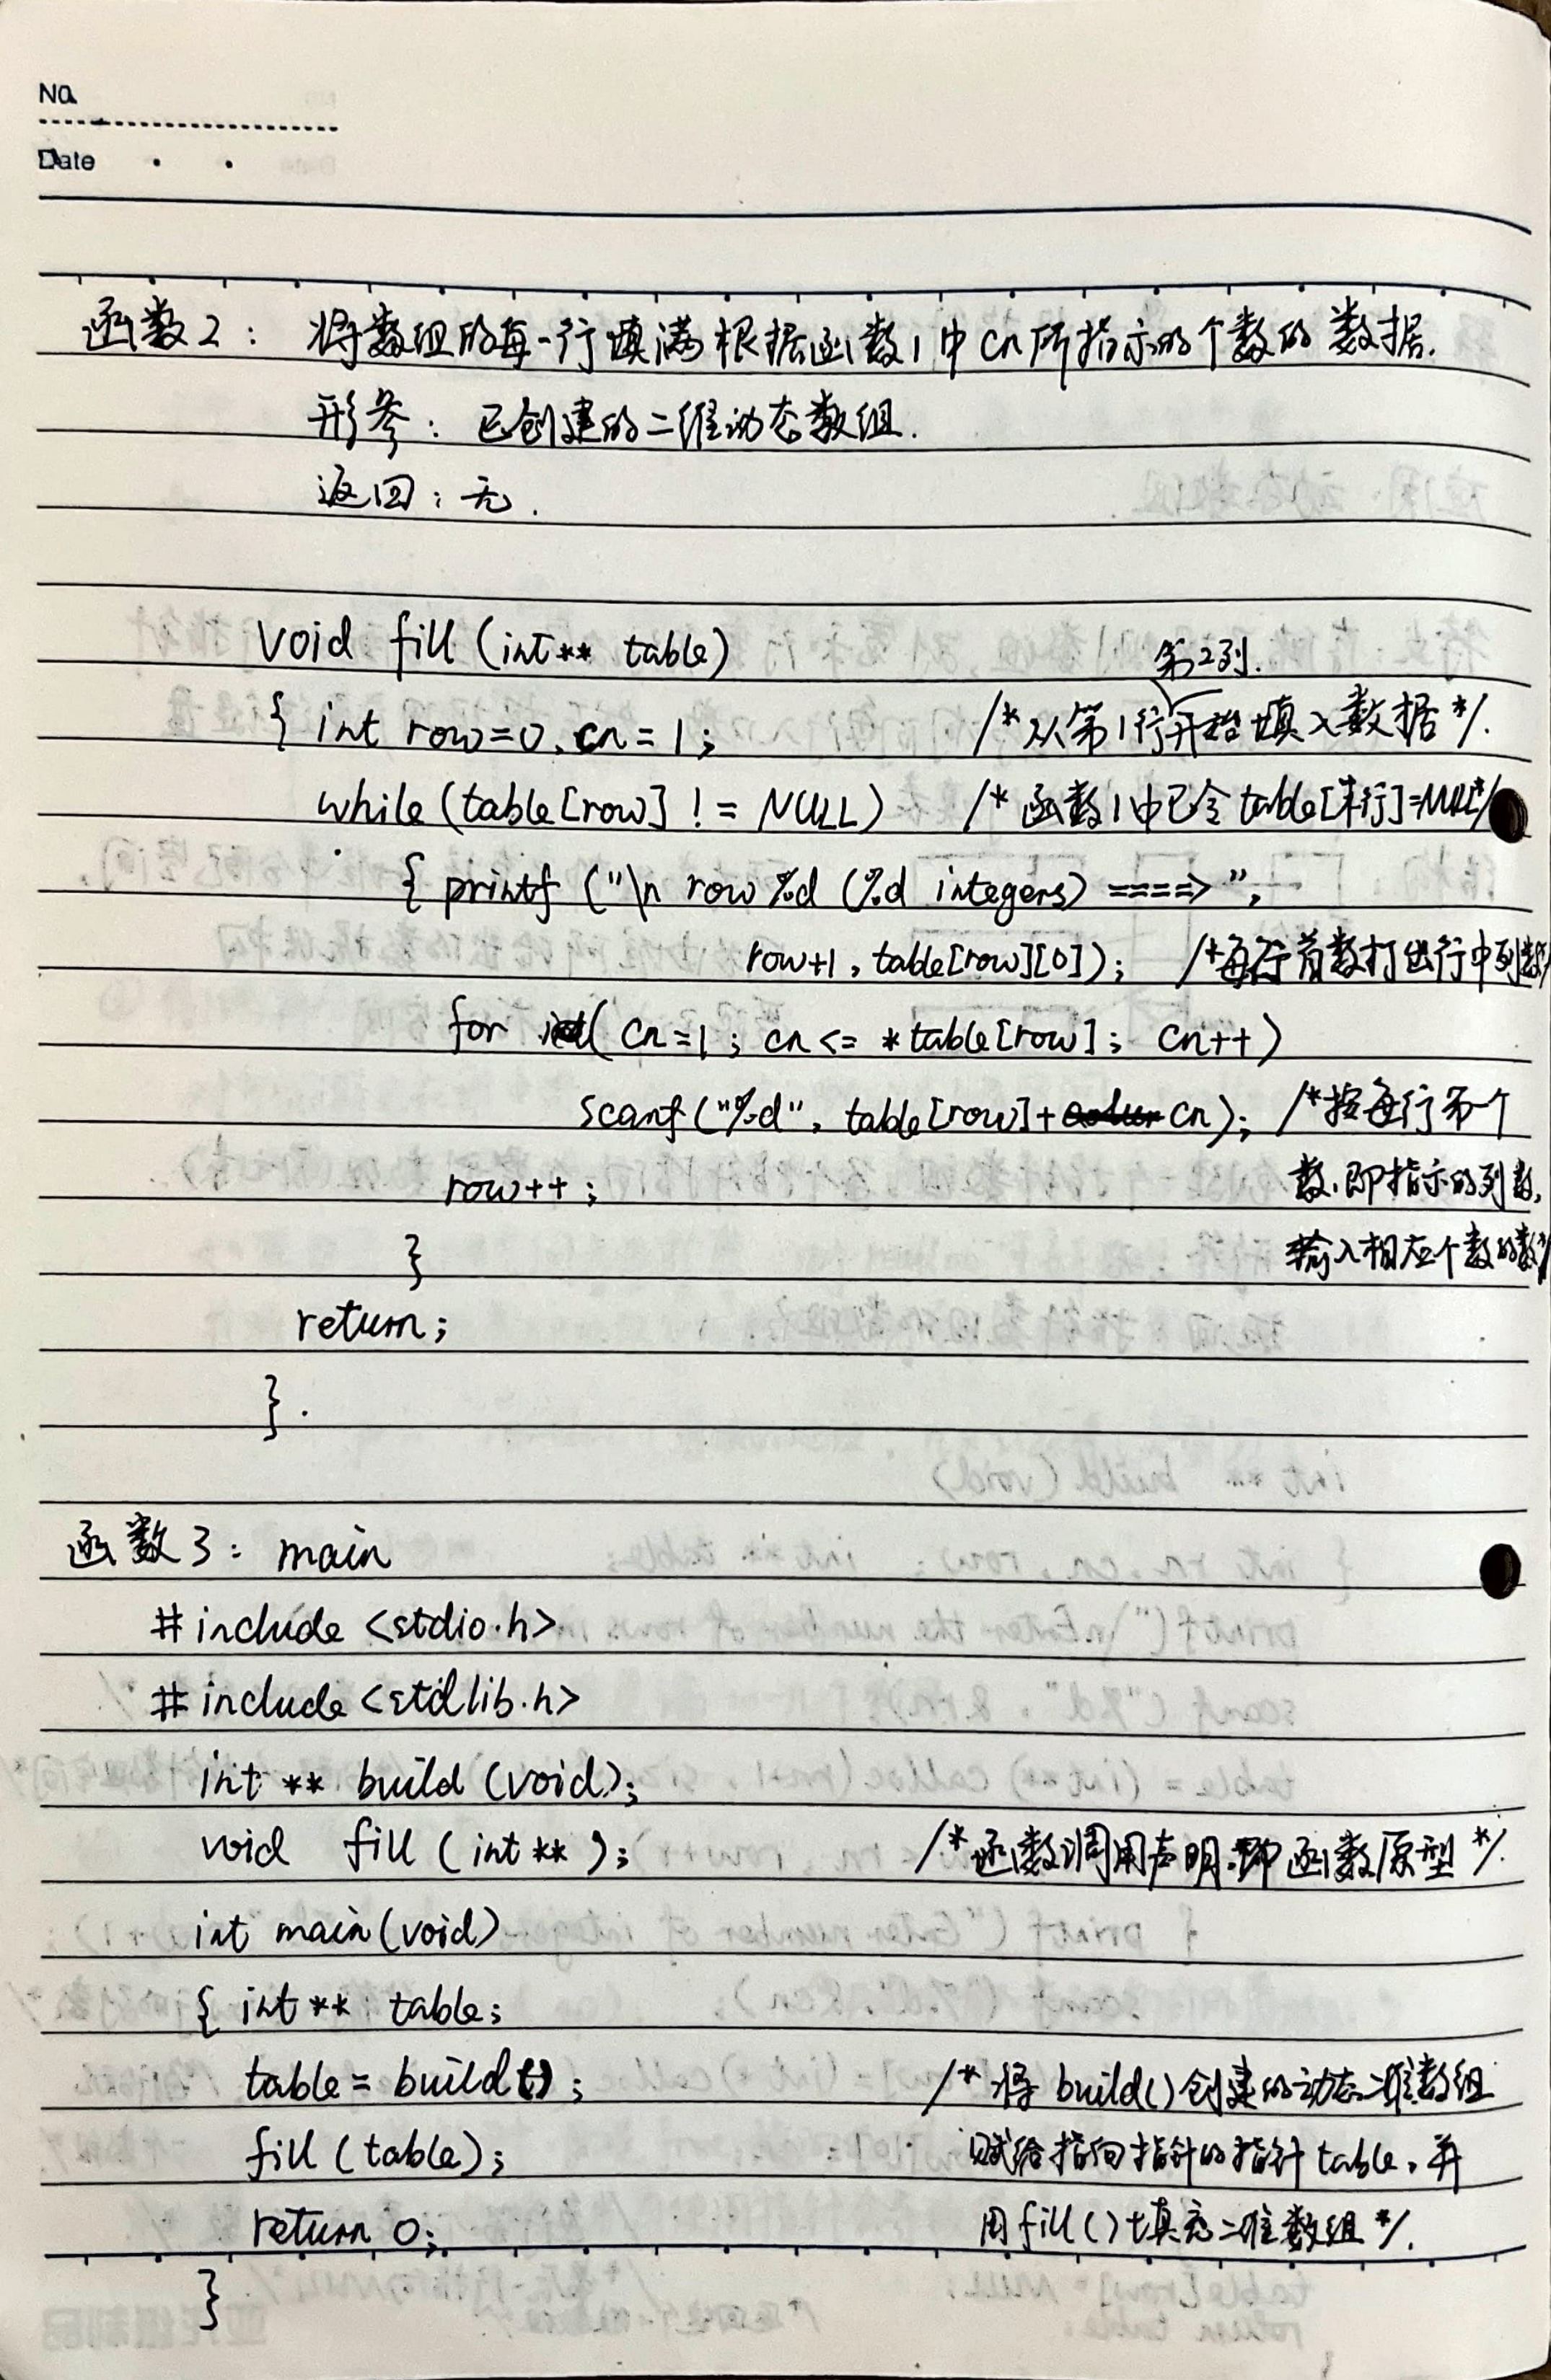 No.
Date
函数2: 将数组的每一行填满根据函数1中cn所指示的个数的数据.
形参: 已创建的二维动态数组.
返回: 无.
void fill (int** table)
第2列.
{ int row=0, cn=1; /*从第1行开始填入数据*/.
while (table[row] != NULL) /*函数1中已令table[末行]=NULL*/
{ printf ("\n row %d (%d integers) ====> ",
row+1, table[row][0]); /*每行首数打出行中列数*/
for ( cn=1; cn<= *table[row]; cn++)
scanf("%d", table[row]+cn); /*按每行第一个
row++; 数,即指示的列数,
} 输入相应个数的数*/
return;
}.
函数3: main
#include <stdio.h>
#include <stdlib.h>
int ** build (void);
void fill (int **); /*函数调用声明,即函数原型*/.
int main(void)
{ int** table;
table= build(); /*将build()创建的动态二维数组
fill (table); 赋给指向指针的指针table,并
return 0; 用fill()填充二维数组*/.
}